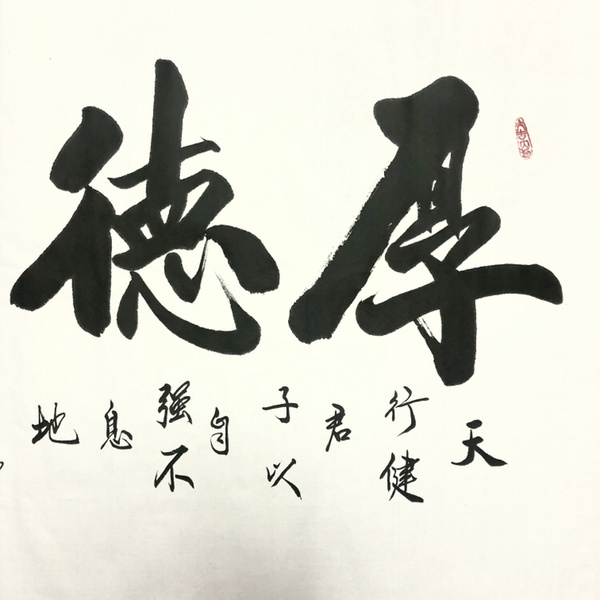 厚德
天
行健
君
子以
自
强不
息
地